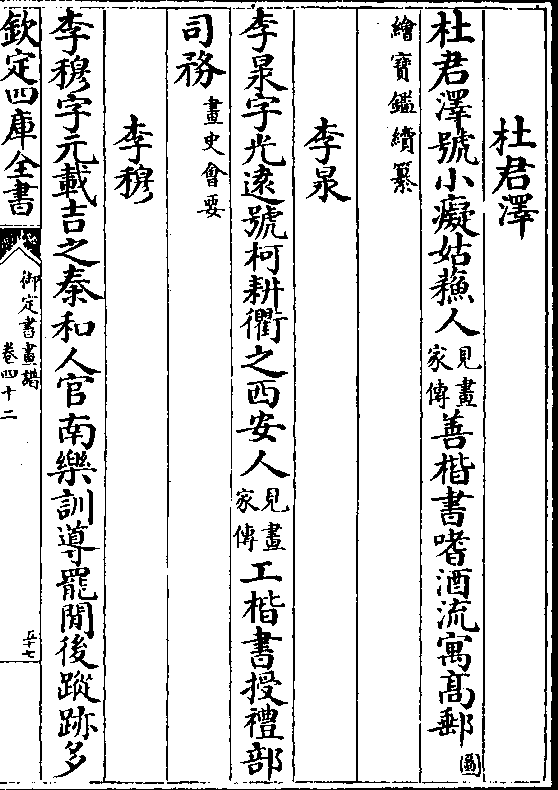 杜君澤
杜君澤號小癡姑蘓人見畫家傳善楷書嗜酒流寓髙郵圖
繪寳鑑續纂
李杲
李杲字光逺號柯耕衢之西安人見畫家傳工楷書授禮部
司務畫史會要
李穆
李穆字元載吉之泰和人官南樂訓導罷閒後蹤跡多
欽定四庫全書
御定書畫譜
卷四十二
五十七